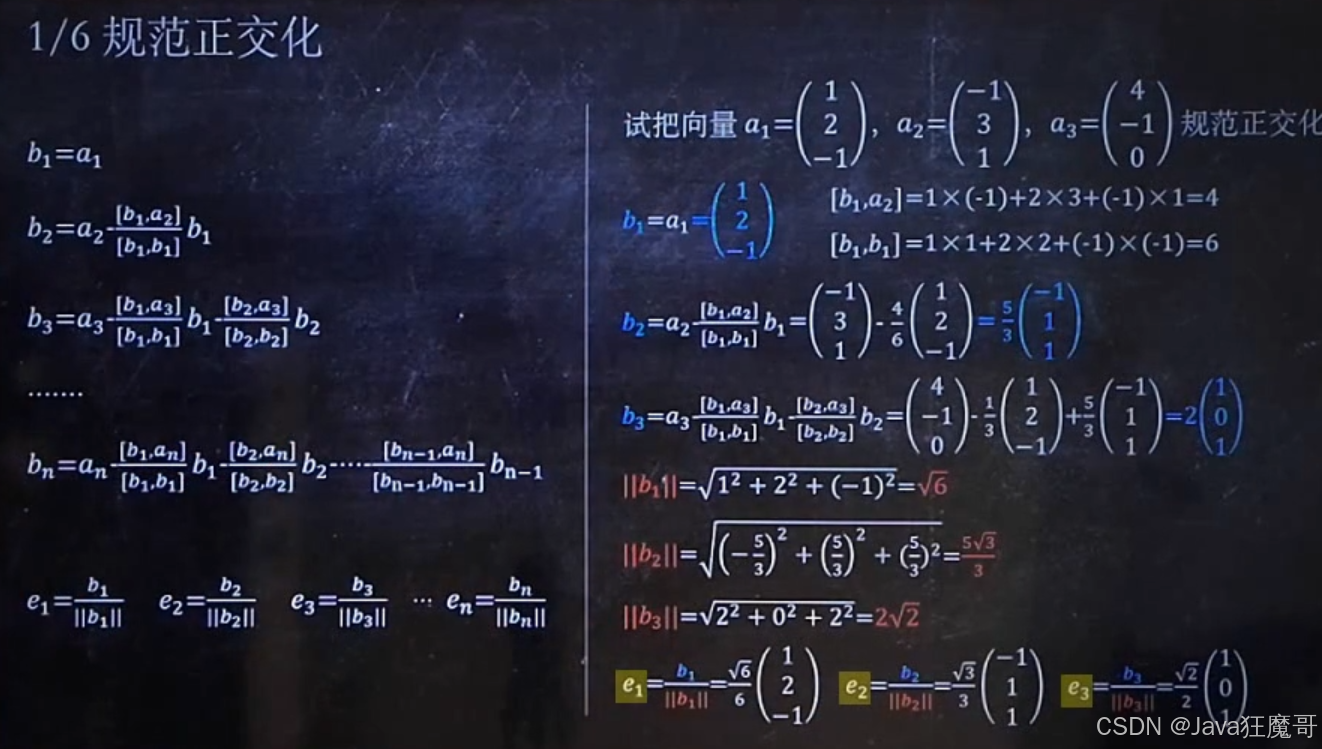 1/6 规范正交化
b₁=a₁
b₂=a₂-[b₁,a₂]/[b₁,b₁] b₁
b₃=a₃-[b₁,a₃]/[b₁,b₁] b₁-[b₂,a₃]/[b₂,b₂] b₂
.......
bₙ=aₙ-[b₁,aₙ]/[b₁,b₁] b₁-[b₂,aₙ]/[b₂,b₂] b₂-·····-[bₙ₋₁,aₙ]/[bₙ₋₁,bₙ₋₁] bₙ₋₁
e₁=b₁/||b₁|| e₂=b₂/||b₂|| e₃=b₃/||b₃|| ··· eₙ=bₙ/||bₙ||
试把向量 a₁=(1 2 −1), a₂=(−1 3 1), a₃=(4 −1 0) 规范正交化
b₁=a₁=(1 2 −1)
[b₁,a₂]=1×(-1)+2×3+(-1)×1=4
[b₁,b₁]=1×1+2×2+(-1)×(-1)=6
b₂=a₂-[b₁,a₂]/[b₁,b₁] b₁=(−1 3 1)-4/6(1 2 −1)=5/3(−1 1 1)
b₃=a₃-[b₁,a₃]/[b₁,b₁] b₁-[b₂,a₃]/[b₂,b₂] b₂=(4 −1 0)-1/3(1 2 −1)+5/3(−1 1 1)=2(1 0 1)
||b₁||=√(1² + 2² + (−1)²)=√6
||b₂||=√((−5/3)² + (5/3)² + (5/3)²)=5√3/3
||b₃||=√(2² + 0² + 2²)=2√2
e₁=b₁/||b₁||=√6/6(1 2 −1) e₂=b₂/||b₂||=√3/3(−1 1 1) e₃=b₃/||b₃||=√2/2(1 0 1)
CSDN @Java狂魔哥